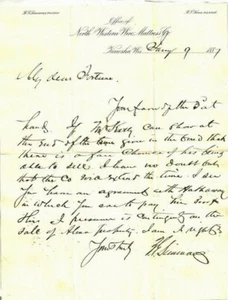 Office of
North Western Wire Mattress Co.
Kenosha Wis. Aug 9 1887
My dear Fortune
Your favor of the 21st
hand. If Mr Kelly can show at
the End of the time given in the bond that
there is a fair chance of his being
able to sell, I have no doubt but
that the Co will extend the time. I see
you have an agreement with
in which you are to pay him
this I presume is contingent on the
sale of property. am I right?
Yours truly
Simmons